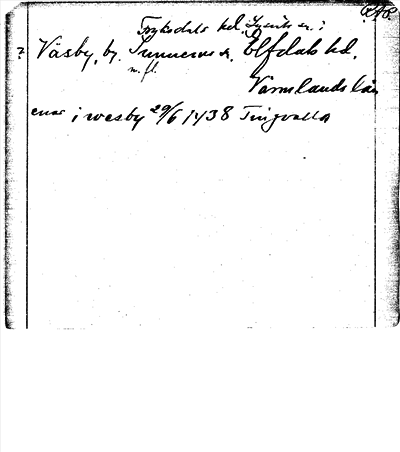 Fryksdals hd.
? Väsby, by. Sunnemo s. Elfdals hd.
m. fl.
Värmlands län
enar i wesby 29/6 1438 Tingvalla